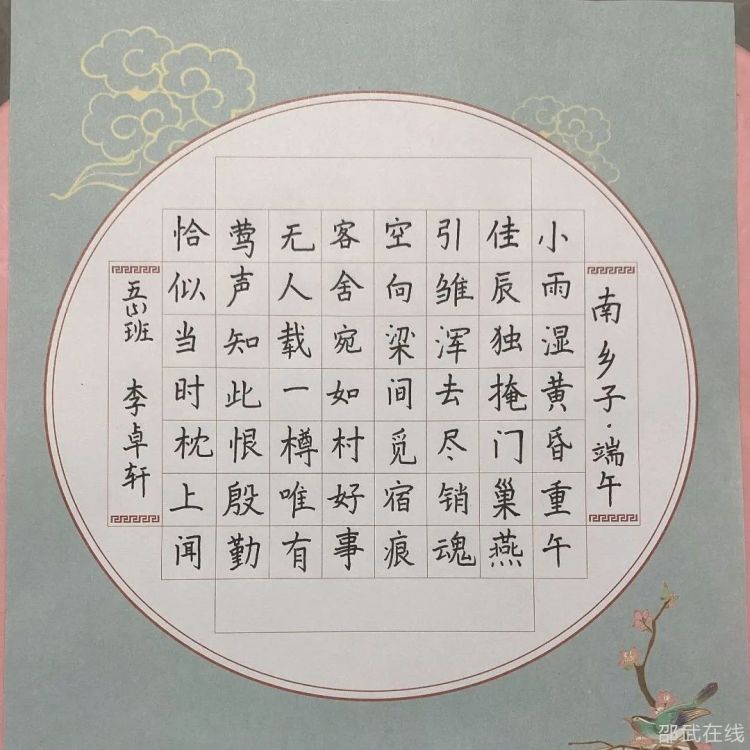 南乡子·端午
小雨湿黄昏重午
佳辰独掩门巢燕
引雏浑去尽销魂
空向梁间觅宿痕
客舍宛如村好事
无人载一樽唯有
莺声知此恨殷勤
恰似当时枕上闻
五(4)班 李卓轩
邵武在线